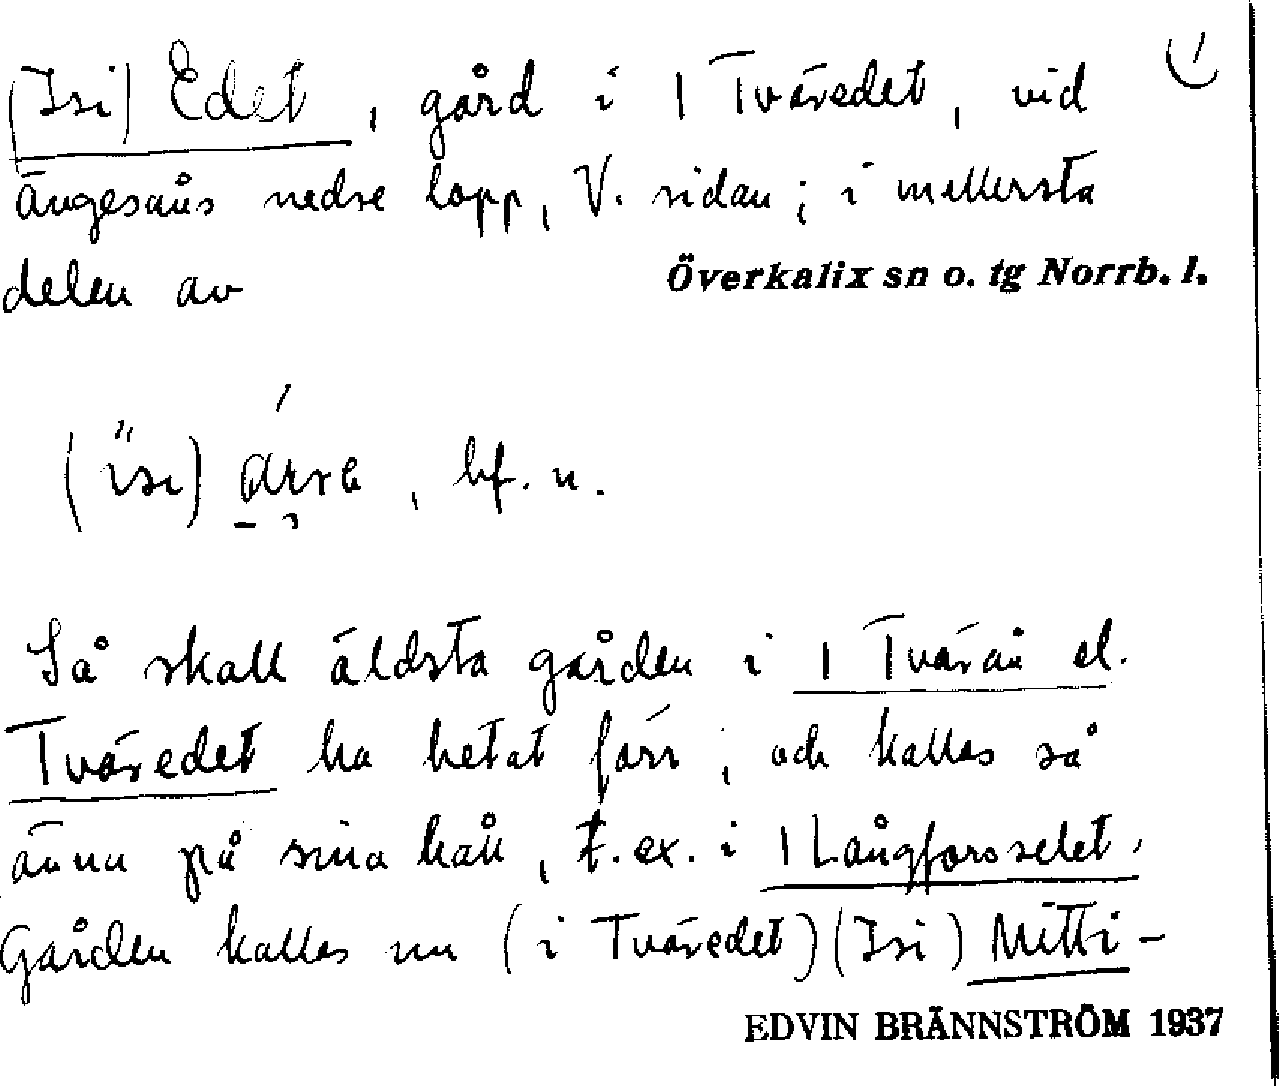 (Isi) Edet, gård i | Tväredet, vid
Ängesåns nedre lopp, V. sidan; i mellersta
delen av Överkalix sn o. tg Norrb. l.
, bf. n.
Så skall äldsta gården i | Tvärån el.
Tväredet ha hetat förr; och kallas så
ännu på sina håll, t.ex. i | Långforsselet.
Gården kallas nu (i Tväredet) (Isi) Mitti-
EDVIN BRÄNNSTRÖM 1937